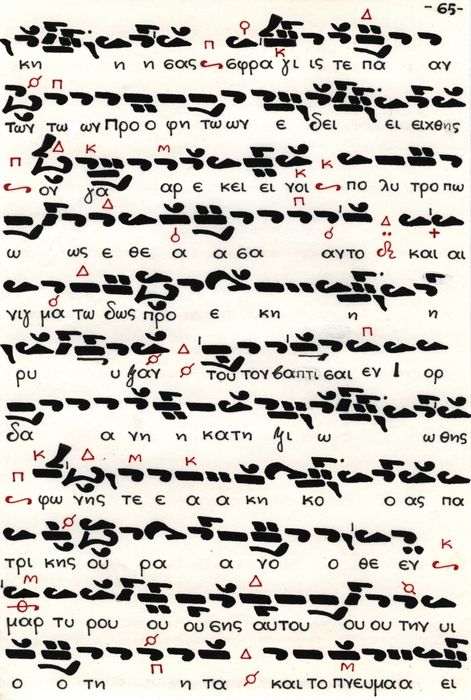 -65-
κη η η σας σφρα γι ις τε πα αν
των τω ων Προ ο φη τω ων ε δει ει ειχθης
ον γα αρ ε κει ει νοι πο λυ τρο πω
ω ως ε θε α α σα αυτο και αι
νιγ μα τω δως προ ε κη η η
ρυ υ ξαν του τον βαπτι σαι εν Ι ορ
δα α νη η κατη ξι ω ω θης
φω νης τε ε α α κη κο ο ας πα
τρι κης ου ρα α νο ο θε εν
μαρ τυ ρου ου ου σης αυτου ου ου την υι
ο ο τη η τα και το πνευμα α ει